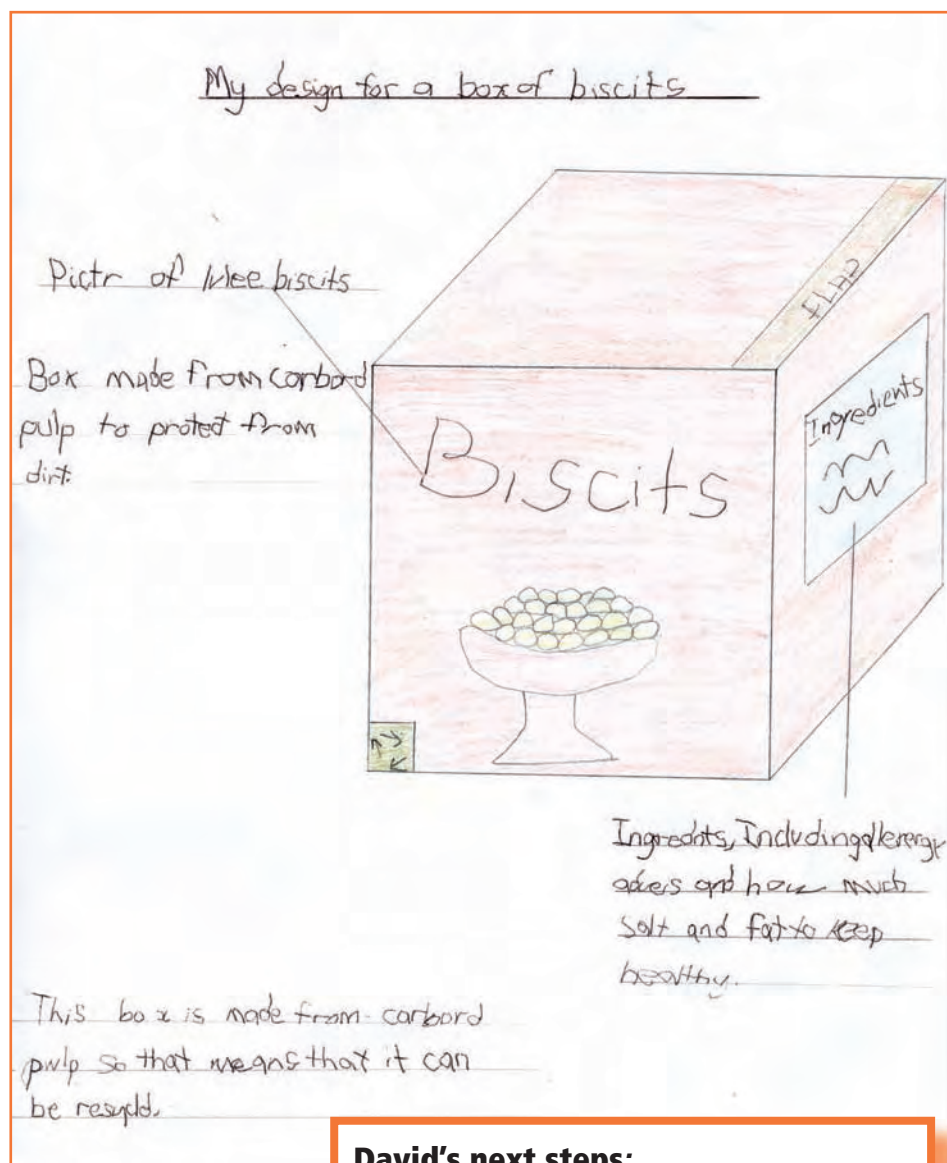 My design for a box of biscits
Pictr of biscits
Box made from carbord
pulp to protect from
dirt.
FLAP
Biscits
Ingredients
Ingrednts, Including allerergy
and how much
salt and fat to keep
healthy.
This box is made from carbord
pulp so that means that it can
be resycld.
David's next steps: